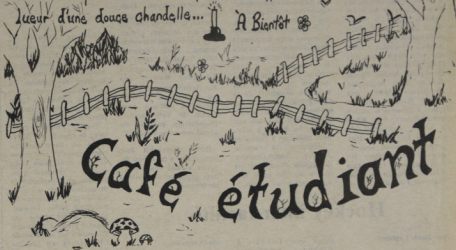 lueur d'une douce chandelle... A Bientôt
Café étudiant